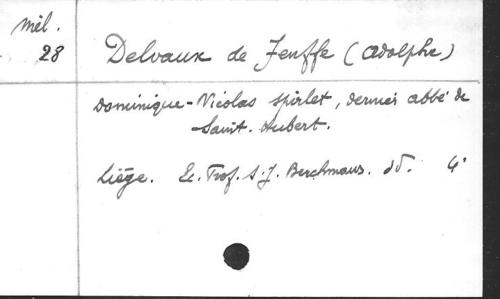 Mél.
28
Delvaux de Fenffe (Adolphe)
Dominique-Nicolas Spirlet, dernier abbé de
Saint-Hubert.
Liège. Ec. Prof. S.J. Berchmans. sd. 4°